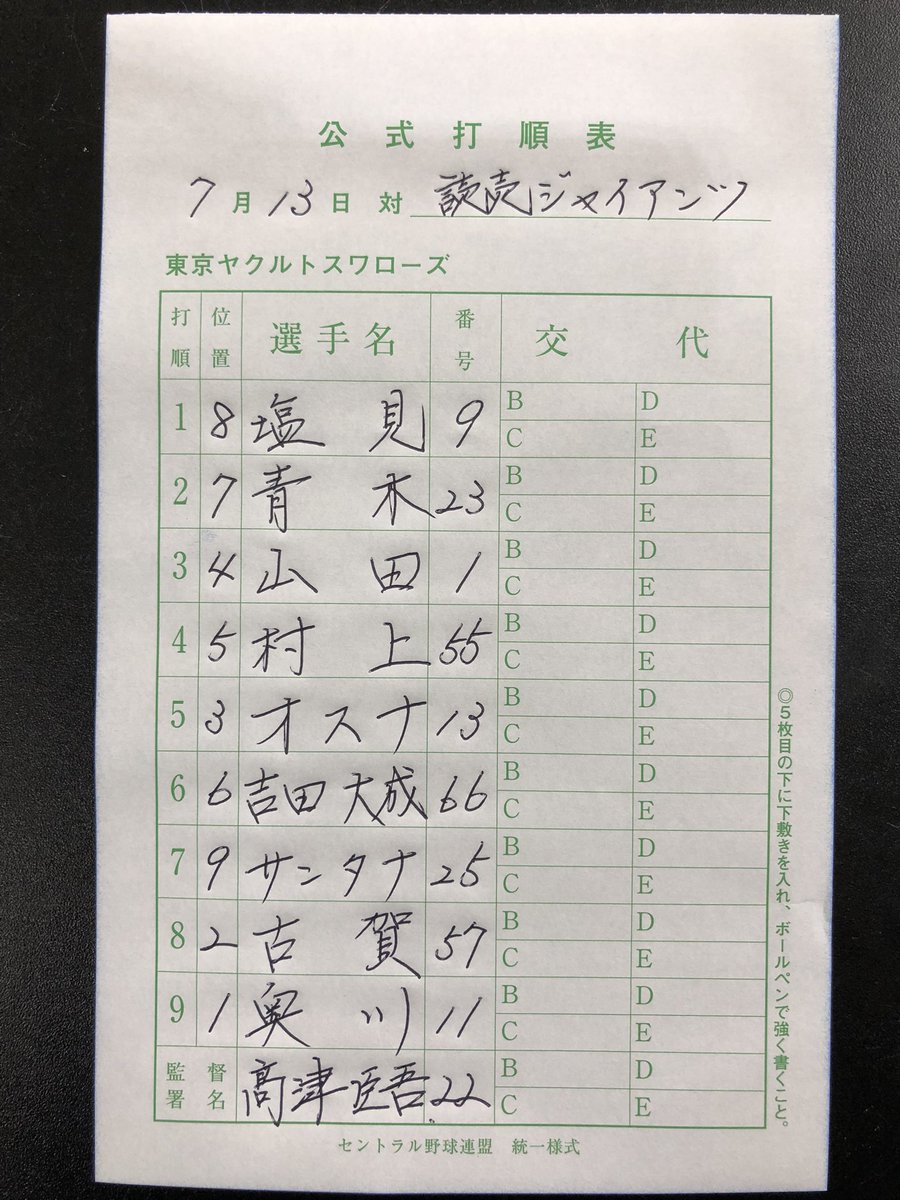 公式打順表
7月13日 対 読売ジャイアンツ
東京ヤクルトスワローズ
打順 位置 選手名 番号 交代
1 8 塩見 9 B D
C E
2 7 青木 23 B D
C E
3 4 山田 1 B D
C E
4 5 村上 55 B D
C E
5 3 オスナ 13 B D
C E
6 6 吉田大成 66 B D
C E
7 9 サンタナ 25 B D
C E
8 2 古賀 57 B D
C E
9 1 奥川 11 B D
C E
監督署名 高津臣吾 22 B D
C E
◎5枚目の下に下敷きを入れ、ボールペンで強く書くこと。
セントラル野球連盟 統一様式